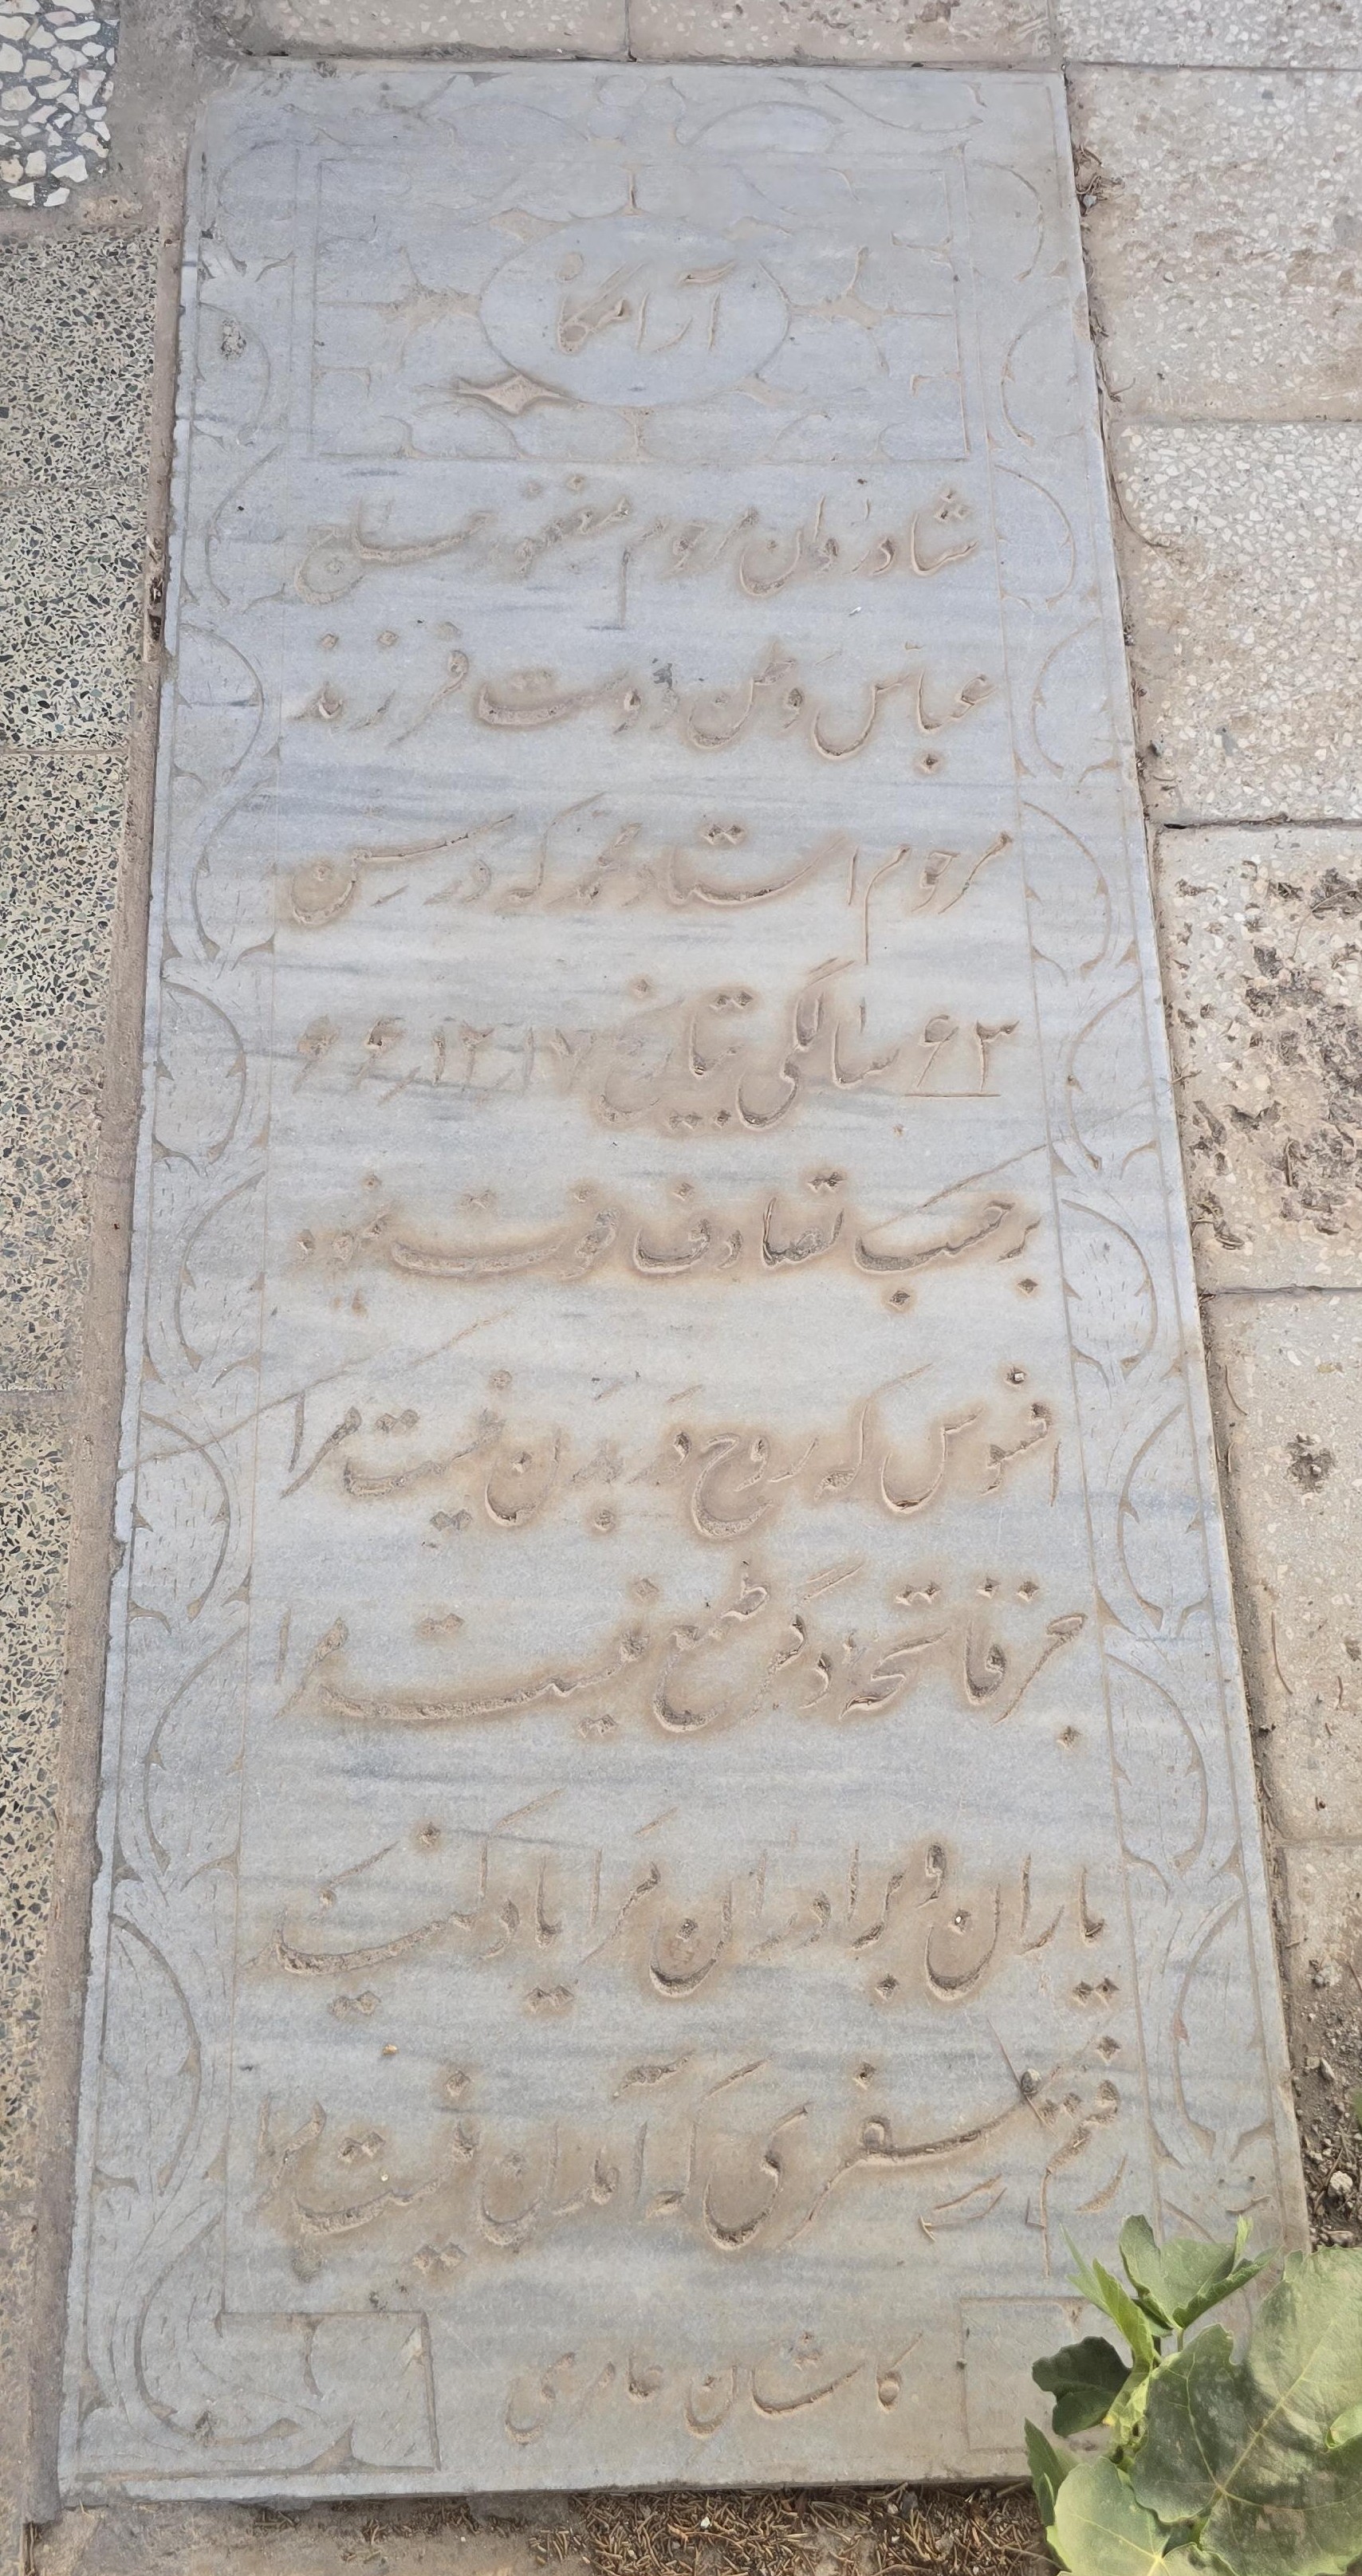 آرامگاه
شادروان مرحوم مغفور حاج
عباس وطن دوست فرزند
مرحوم استاد محمد که در سن
۶۳ سالگی بتاریخ ۱۷ر۱۲ر۶۶
برحسب تصادف فوت نمود
افسوس که روح در بدن نیست مرا
جز فاتحه دگر طمع نیست مرا
یاران و برادران مرا یاد کنید
رفتم سفری که آمدن نیست مرا
کاشان عامری